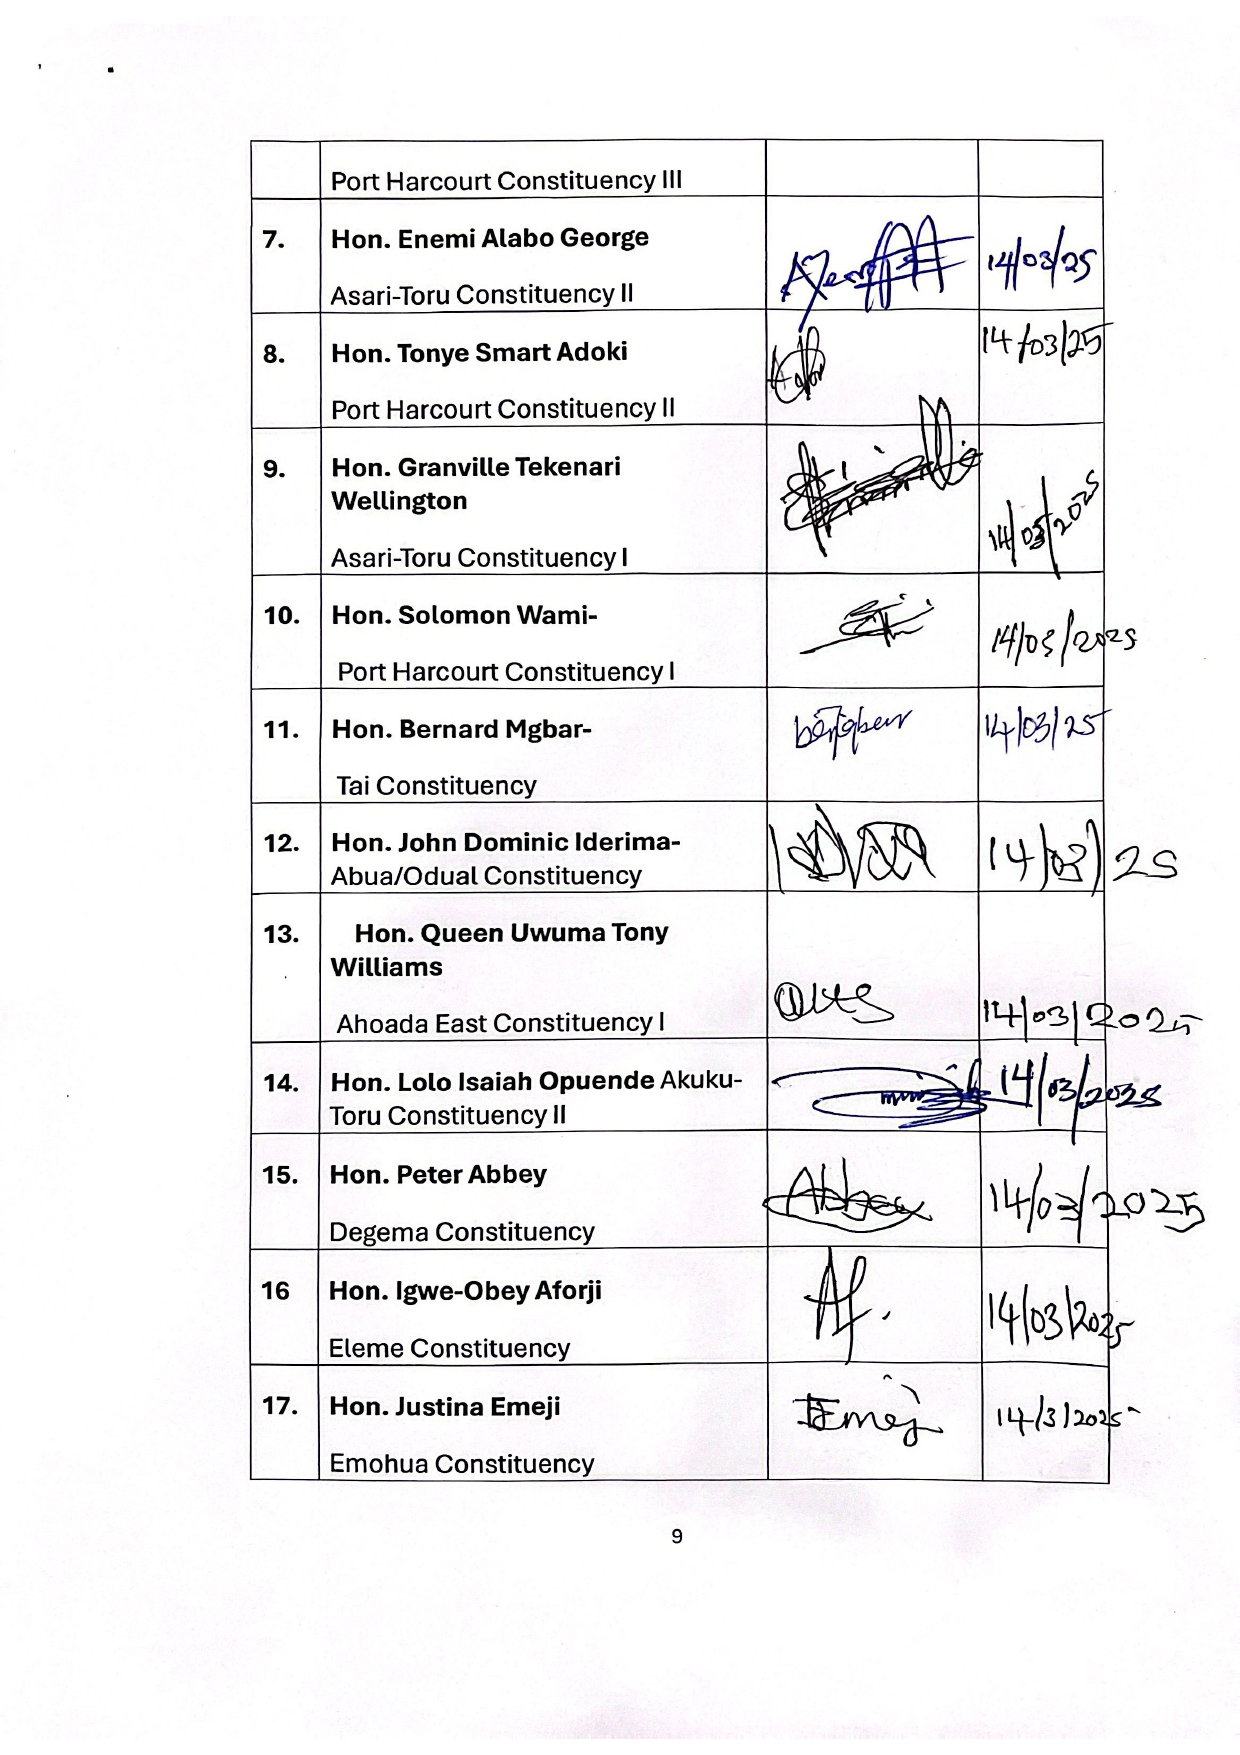 Port Harcourt Constituency III
7. Hon. Enemi Alabo George 14/03/25
Asari-Toru Constituency II
8. Hon. Tonye Smart Adoki 14/03/25
Port Harcourt Constituency II
9. Hon. Granville Tekenari
Wellington 14/03/2025
Asari-Toru Constituency I
10. Hon. Solomon Wami- 14/03/2025
Port Harcourt Constituency I
11. Hon. Bernard Mgbar- 14/03/25
Tai Constituency
12. Hon. John Dominic Iderima- 14/03/25
Abua/Odual Constituency
13. Hon. Queen Uwuma Tony
Williams
Ahoada East Constituency I 14/03/2025
14. Hon. Lolo Isaiah Opuende Akuku- 14/03/2025
Toru Constituency II
15. Hon. Peter Abbey Abbey 14/03/2025
Degema Constituency
16 Hon. Igwe-Obey Aforji Af. 14/03/2025
Eleme Constituency
17. Hon. Justina Emeji Emeji 14/3/2025
Emohua Constituency
9